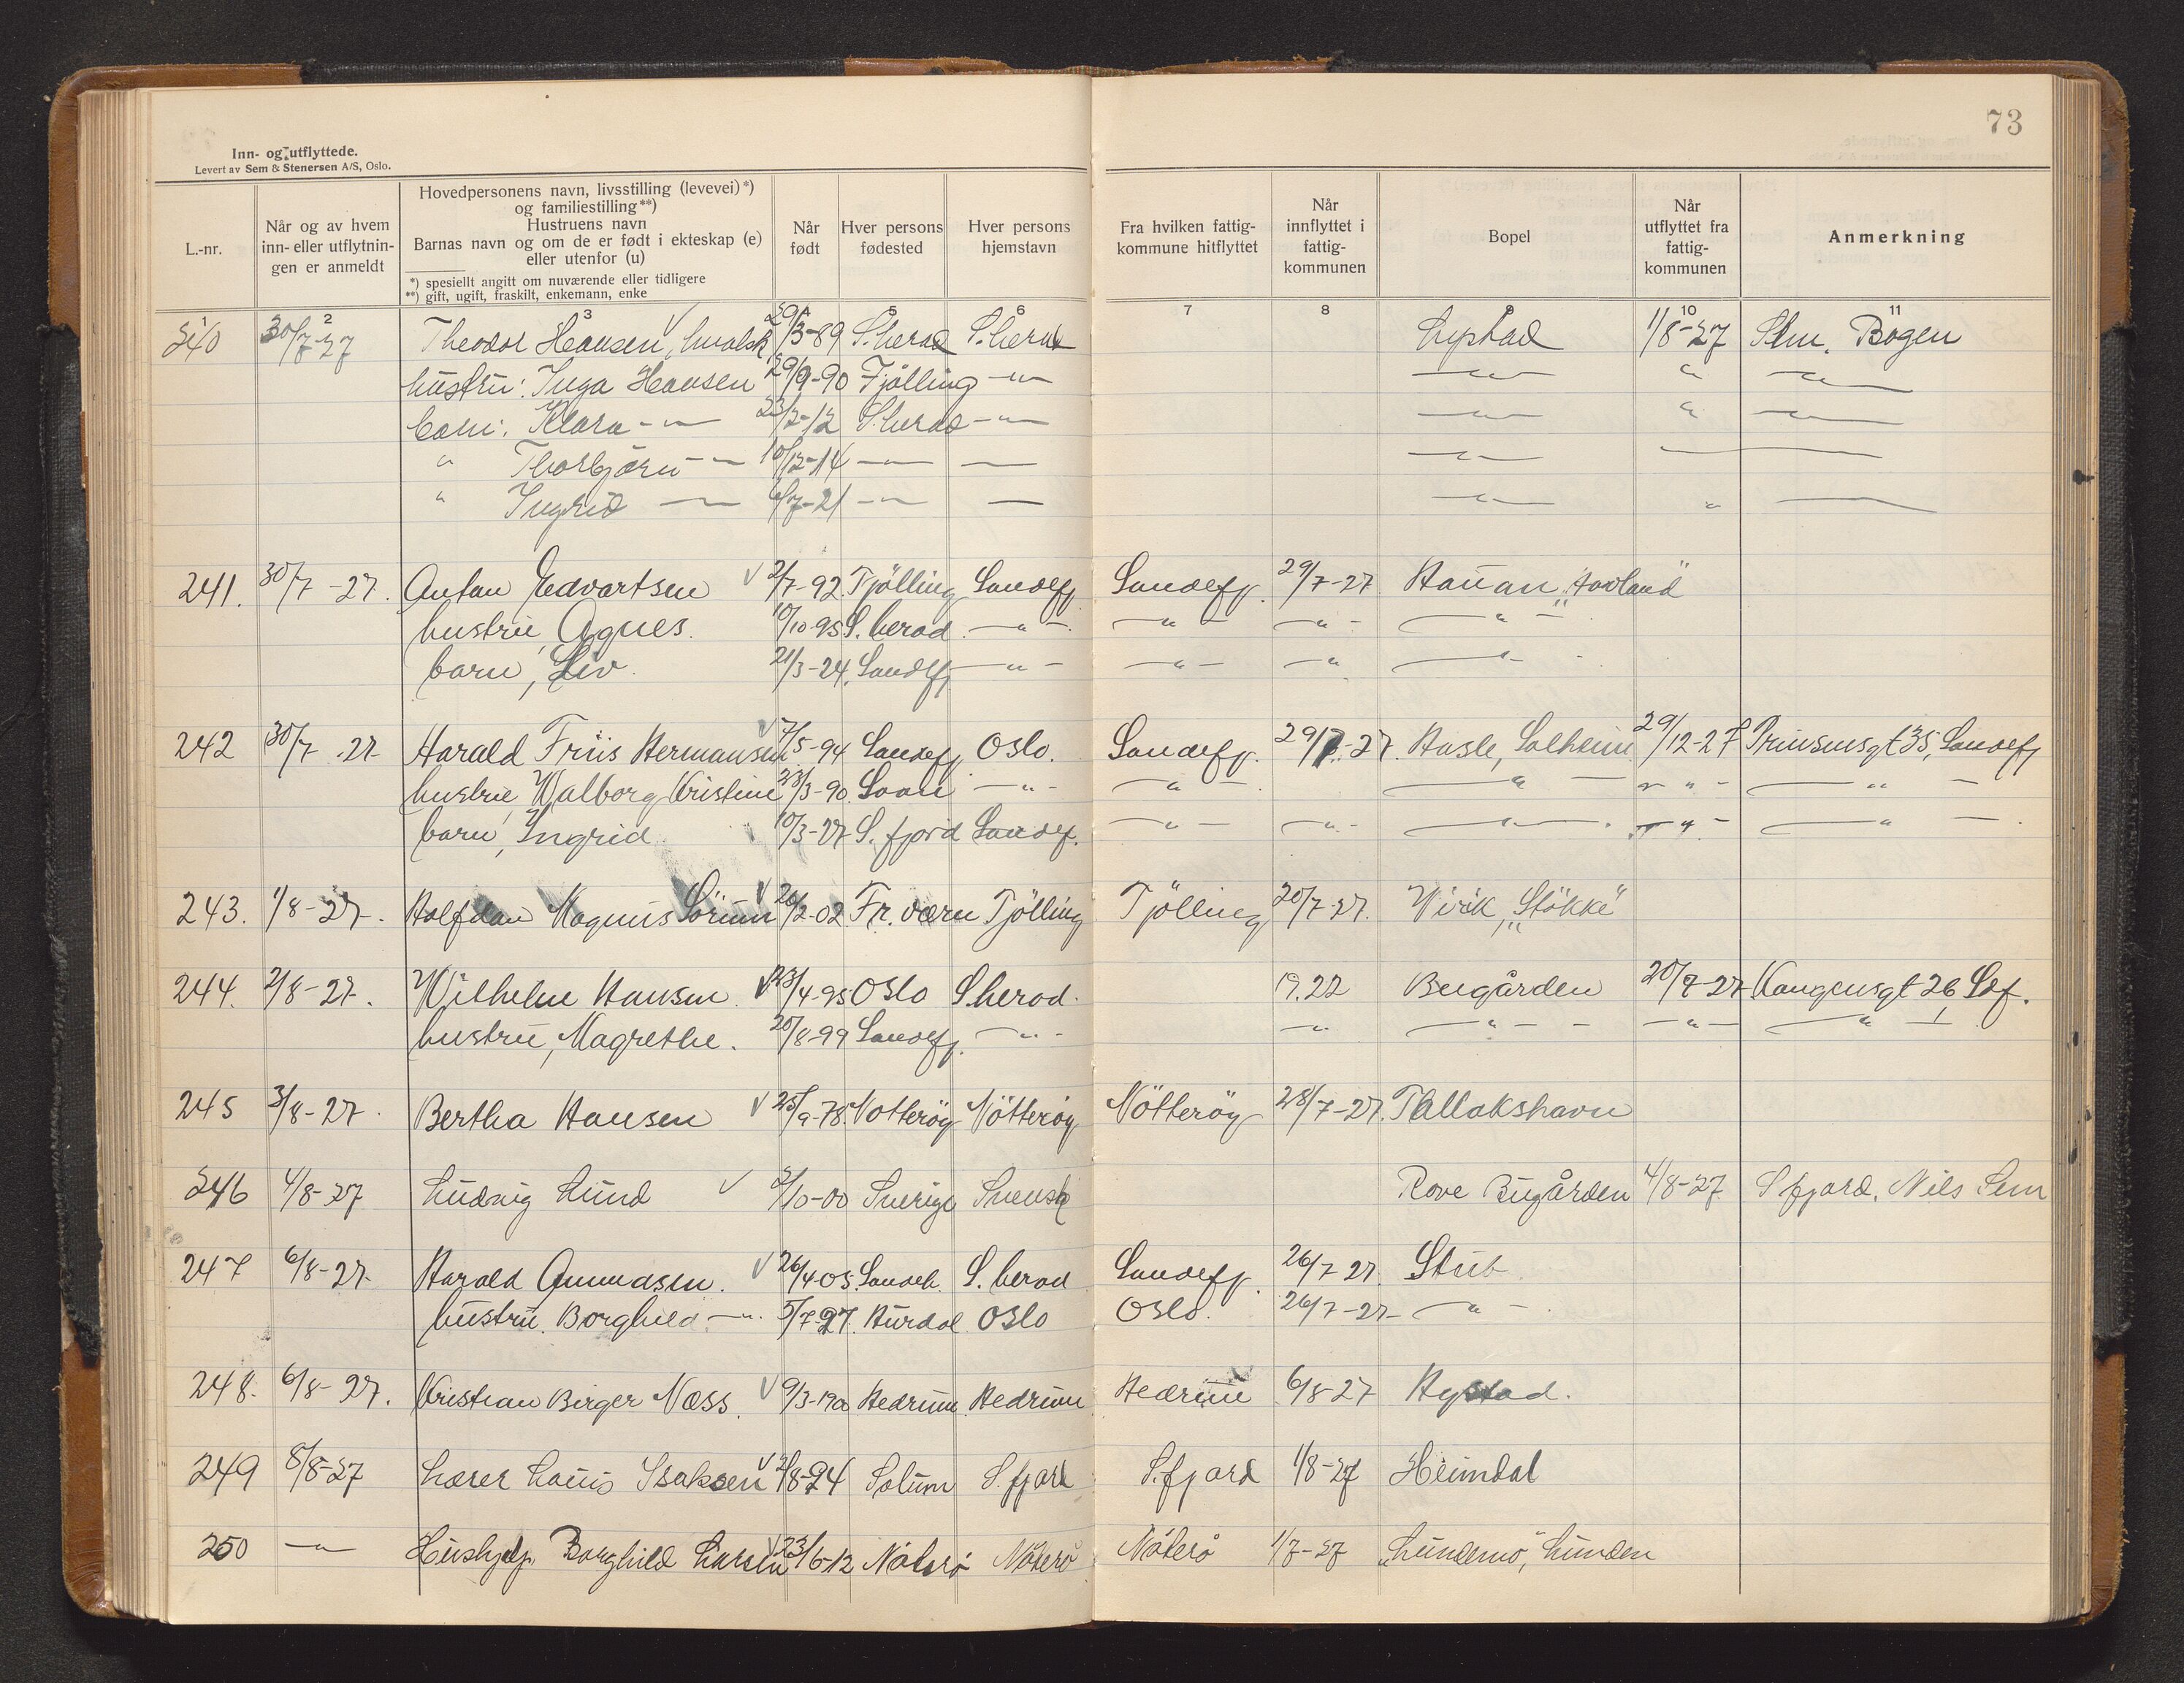 73
Inn- og utflyttede.
Levert av Sem & Stenersen A/S, Oslo.
L.-nr.
Når og av hvem inn- eller utflytnin- gen er anmeldt
Hovedpersonens navn, livsstilling (levevei) *) og familiestilling **)
Hustruens navn
Barnas navn og om de er født i ekteskap (e) eller utenfor (u)
*) spesiellt angitt om nuværende eller tidligere
**) gift, ugift, fraskilt, enkemann, enke
Når født
Hver persons fødested
Hver persons hjemstavn
Fra hvilken fattig- kommune hitflyttet
Når innflyttet i fattig- kommunen
Bopel
Når utflyttet fra fattig- kommunen
Anmerkning
1 2 3 4 5 6 7 8 10 11
240 30/7-27 Theodor Hansen, hvalsk 29/3-89 S.herad S.herad 1/8-27 Sem. Bogen
hustru: Inga Hansen 29/9-90 Tjølling -"- -"- " -"-
barn: Klara -"- 23/2-12 S.herad -"- -"- " -"-
" Thorbjørn -"- 10/12-14 -"- — -"- — —
" Ingrid — 6/7-21 -"- — -"- " —
241. 30/7-27. Anton Edvartsen √ 2/7-92 Tjölling Sandefj. Sandefj. 29/7-27 Hauan, "Hovland"
hustru, Agnes. 10/10-95 S. herad -"- -"- -"- -"-
barn, Liv. 21/3-24. Sandefj -"- -"- -"- -"-
242 30/7-27 Harald Friis Hermansen √ 7/5-94 Sandefj. Oslo. Sandefj. 29/7-27. Hasle, Solheim 29/12-27 Prinsensgt 35, Sandefj
hustru, Walborg Kristine 23/3-90. Soon -"- -"- -"- -"- -"-
barn, Ingrid 10/3-27 S. fjord Sandef. -"- -"- -"- -"- -"-
243. 1/8-27. Halfdan Magnus Sörum √ 26/2-02 Fr. værn Tjölling Tjölling 20/7-27. Wirik, "Stökke"
244. 2/8-27. Wilhelm Hansen √ 23/4-95 Oslo S.herad. 19.22 Bugården 20/7-27 Kongensgt 26, Sdf.
hustru, Magrethe. 20/8-99 Sandefj. -"- -"- -"- -"- -"-
245 3/8-27. Bertha Hansen √ 25/9-78. Nötteröy Nötteröy Nötteröy 28/7-27. Tallakshavn
246 4/8-27 Ludvig Lund √ 2/10-00 Sverige Svensk Rove Bugården 4/8-27 S.fjord, Nils Sem
247 6/8-27. Harald Amundsen. √ 26/4-05. Sandeh. S. herad Sandefj. 26/7-27. Stub
hustru. Borghild -"- 5/7-27. Hurdal Oslo Oslo. 26/7-27- -"-
248. 6/8-27. Kristian Birger Næss. √ 9/3-1900 Hedrum Hedrum Hedrum 6/8-27 Hystad.
249 8/8-27 Lærer Louis Isaksen √ 2/8-94 Solum S.fjord S.fjord 1/8-27 Heimdal
250 -"- Hushjelp. Borghild Larsen √ 23/6-12 Nøterø Nøterø Nøterø 1/7-27 "Lundemo", Lunden